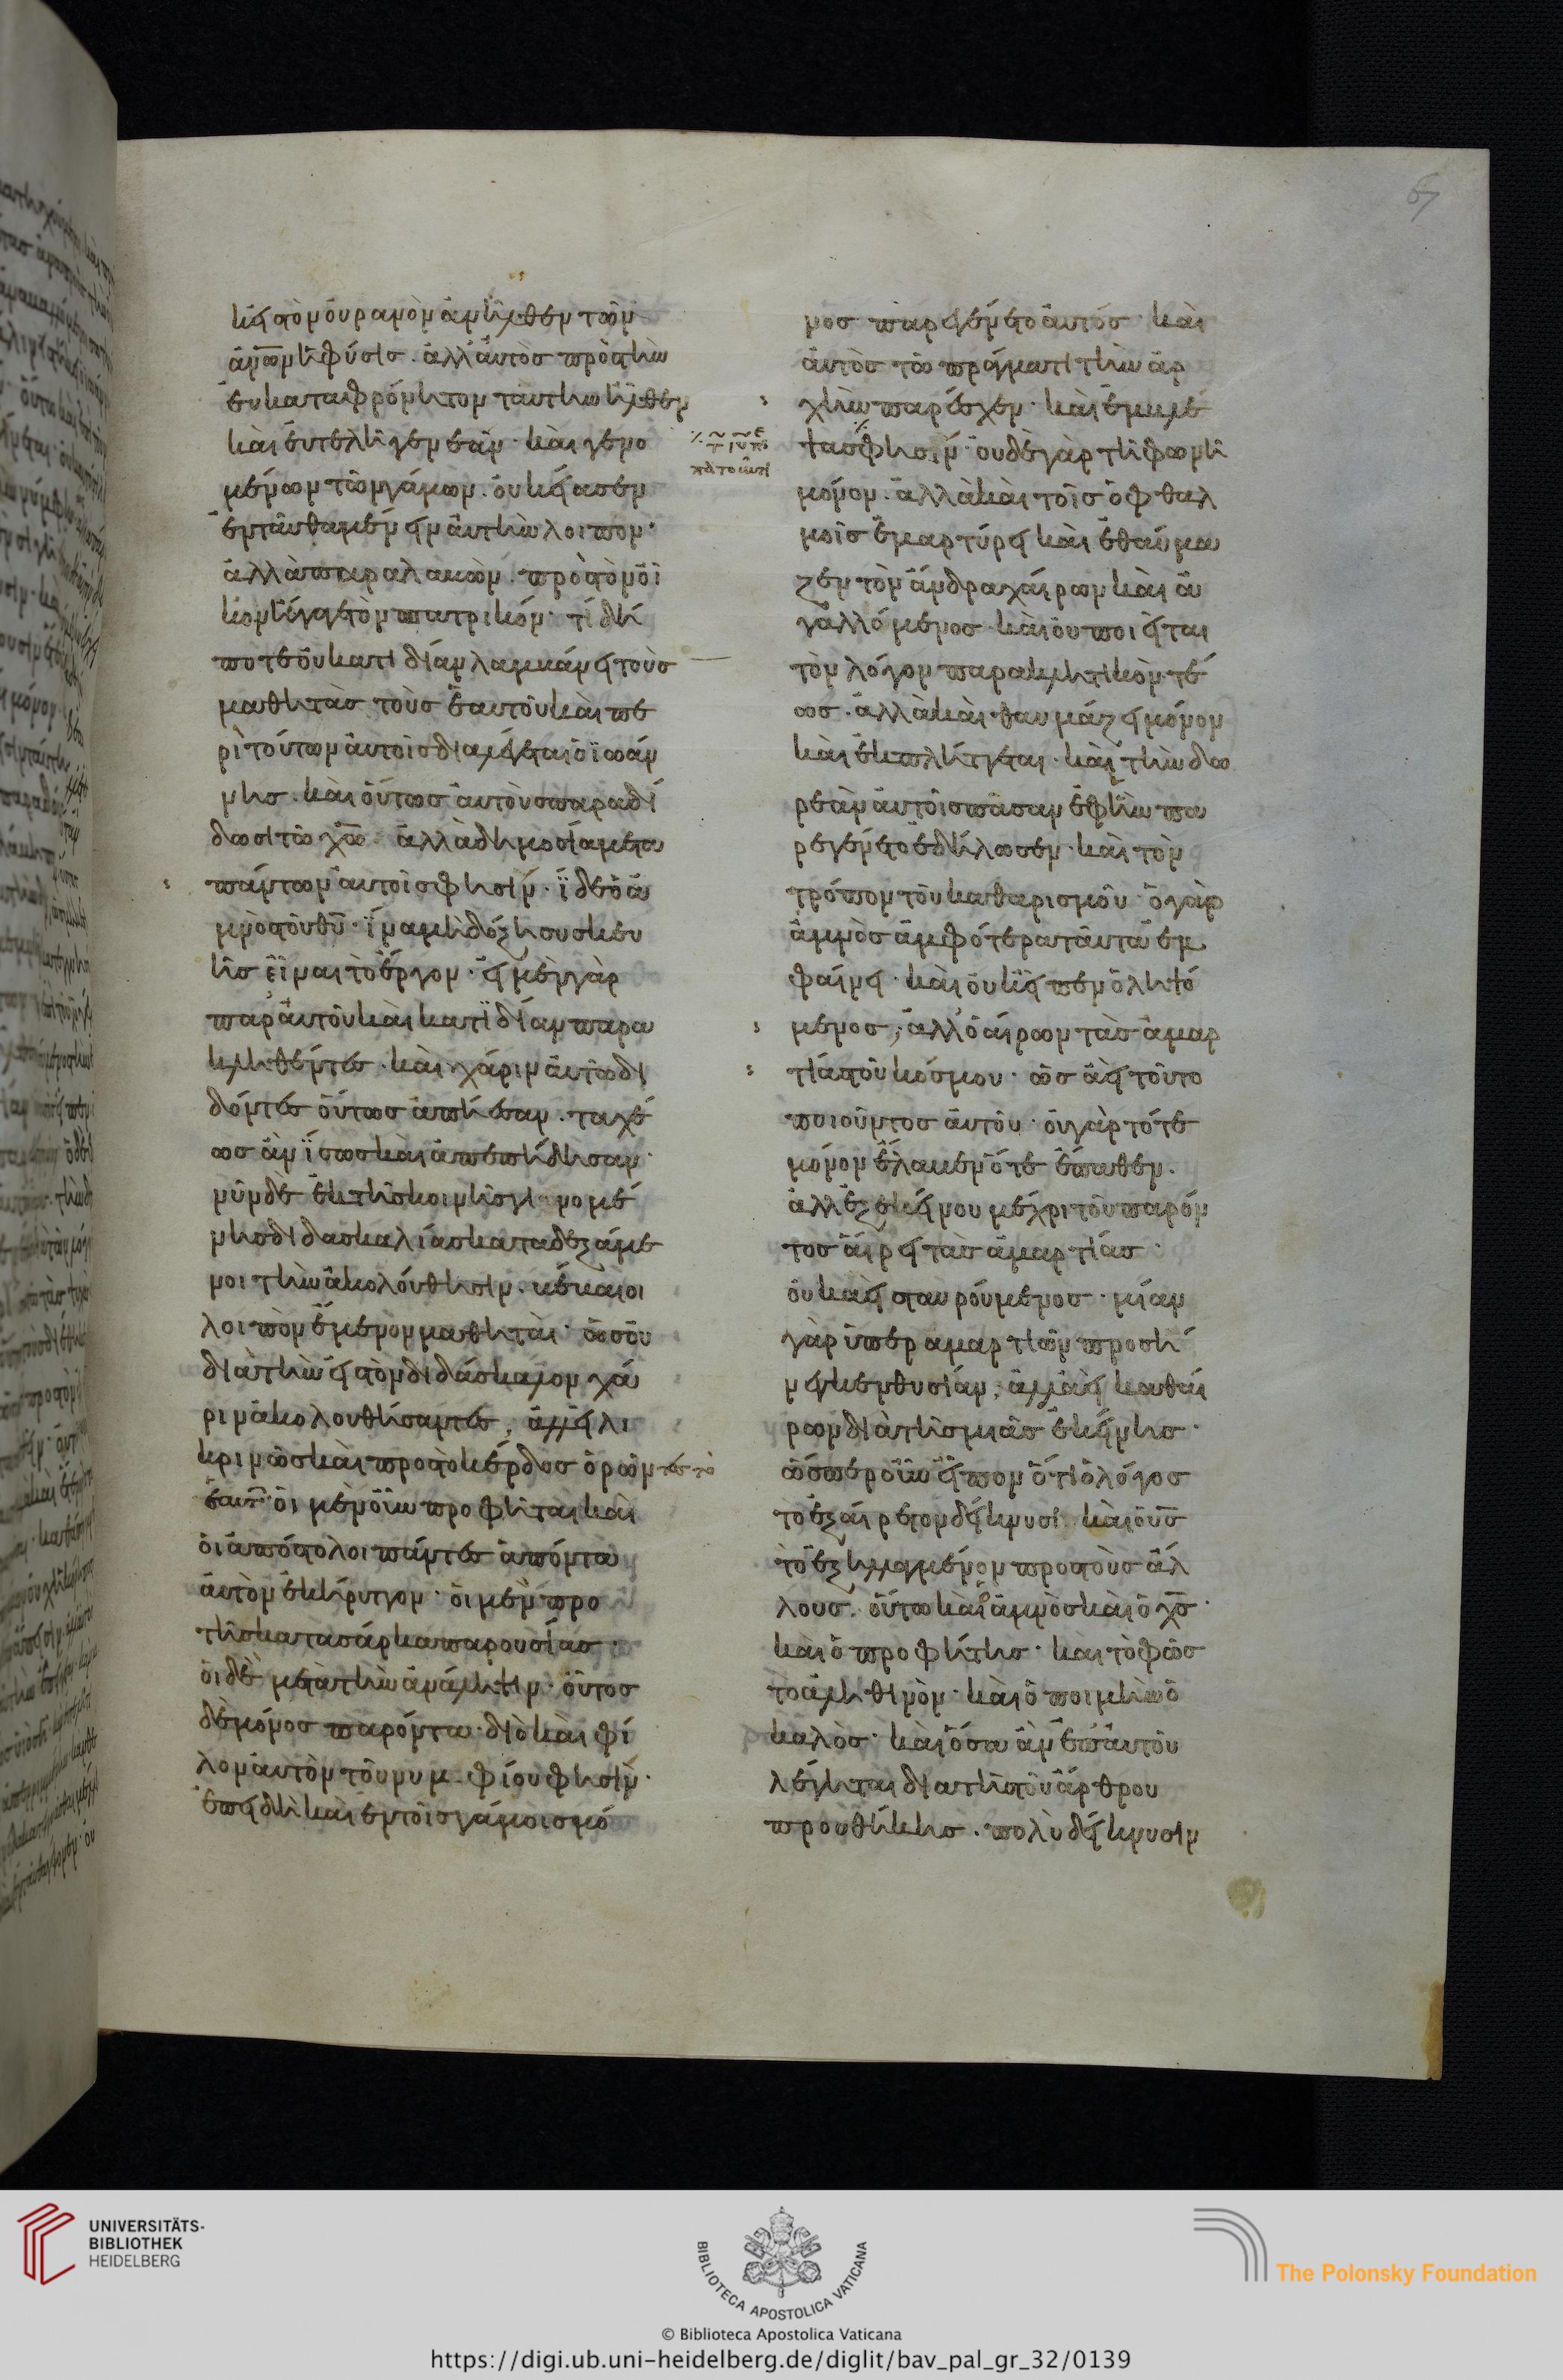 εἰς τὸν οὐρανὸν ἀνῆλθεν τῶν
ἀν̅ων ἡ φύσις. ἀλλ' αὐτὸς πρὸς τὴν
εὐκαταφρόνητον ταύτην ἦλθεν
καὶ εὐτελῆ γενεάν· καὶ γενο
μένων τῶν γάμων. οὐκ εἴασεν
ἐνταῦθα μένειν αὐτὴν λοιπον·
ἀλλὰ παραλαβὼν. πρὸς τὸν οἶ
κον ἤγαγε τὸν πατρικόν· τί δή
ποτε οὐ κατιδίαν λαμβάνει τοὺς
μαθητὰς τοὺς ἑαυτοῦ καὶ πε
ρὶ τούτων αὐτοῖς διαλέγεται ὁ ἰωάν
νης. καὶ οὕτως αὐτοὺς παραδί
δωσι τῶ χω̅. ἀλλὰ δημοσία μετα
πάντων αὐτοῖς φησίν· ἴδε ὁ ἀ
μνὸς τοῦ θυ̅· ἵνα μὴ δόξη συσκευ
ῆς εἶναι τὸ ἔργον· εἰ μὲν γὰρ
παρ' αὐτοῦ καὶ κατιδίαν παρα
κληθέντες. καὶ χάριν αὐτῶ δι
δόντες οὕτως ἀπήεσαν. ταχέ
ως ἂν ἴσως καὶ ἀπεπήδησαν·
νῦν δὲ ἐκ τῆς κοινῆς γινομέ
νης διδασκαλίας καταδεξάμε
νοι τὴν ἀκολούθησιν. βέβαιοι
λοιπὸν ἔμενον μαθηταὶ· ὡς οὐ
διὰ τὴν εἰς τὸν διδάσκαλον χά
ριν ἀκολουθήσαντες, ἀλλ' εἰλι
κρινῶς καὶ πρὸς τὸ κέρδος ὁρῶντες τὸ
ἑαυτῶν· οἱ μὲν οὖν προφῆται καὶ
οἱ ἀπόστολοι πάντες ἀπόντα
αὐτὸν ἐκήρυττον· οἱ μὲν προ
τῆς κατα σάρκα παρουσίας·
οἱ δὲ μετὰ τὴν ἀνάληψιν· οὗτος
δὲ μόνος παρόντα· διὸ καὶ φί
λον αὐτὸν τοῦ νυμφίου φησὶν·
ἐπειδὴ καὶ ἐν τοῖς γάμοις μό
νος παρεγένετο αὐτός· καὶ
αὐτὸς τῶ πράγματι τὴν ἀρ
χὴν παρέσχεν· καὶ ἐμβλέ
ψας φησίν· οὐδὲ γὰρ τῆ φωνῆ
μόνον. ἀλλὰ καὶ τοῖς ὀφθαλ
μοῖς ἐμαρτύρει καὶ ἐθαύμα
ζεν τὸν ἄνδρα χαίρων καὶ ἀ
γαλλόμενος· καὶ οὐ ποιεῖται
τὸν λόγον παρακλητικὸν τέ
ως. ἀλλὰ καὶ θαυμάζει μόνον
καὶ ἐκπλήττεται· καὶ τὴν δω
ρεὰν αὐτοῖς πᾶσαν ἐφ' ἣν πα
ρεγένετο ἐδήλωσεν· καὶ τὸν
τρόπον τοῦ καθαρισμοῦ· ὁ γὰρ
ἀμνὸς ἀμφότερα ταῦτα ἐμ
φαίνει· καὶ οὐκ εἶπεν ὁ ληψό
μενος, ἀλλ' ὁ αἴρων τὰς ἁμαρ
τίας τοῦ κόσμου· ὡς ἀεὶ τοῦτο
ποιοῦντος αὐτοῦ· οὐ γὰρ τότε
μόνον ἔλαβεν ὅτε ἔπαθεν.
ἀλλ' ἐξ ἐκείνου μέχρι τοῦ παρόν
τος αἴρει τὰς ἁμαρτίας·
οὐκ ἀεὶ σταυρούμενος· μίαν
γὰρ ὑπερ αμαρτιῶν προσή
νεγκεν θυσίαν, ἀλλ' ἀεὶ καθαί
ρων διὰ τῆς μιᾶς ἐκείνης·
ὥσπερ οὖν εἶπον ὅτι ὁ λόγος
τὸ ἐξαίρετον δείκνυσι. καὶ ὁ υσ̅
τὸ ἐξηλλαγμένον προς τοὺς ἄλ
λους. οὕτω καὶ ὁ ἀμνὸς καὶ ὁ χσ̅·
καὶ ὁ προφήτης· καὶ τὸ φῶς
τὸ ἀληθινὸν· καὶ ὁ ποιμὴν ὁ
καλὸς· καὶ ὅσα ἂν ἐπ' αὐτοῦ
λέγηται δια τῆς τοῦ ἄρθρου
προσθήκης. πολὺ δείκνυσιν
67
UNIVERSITÄTS-
BIBLIOTHEK
HEIDELBERG
BIBLIOTECA APOSTOLICA VATICANA
The Polonsky Foundation
© Biblioteca Apostolica Vaticana
https://digi.ub.uni-heidelberg.de/diglit/bav_pal_gr_32/0139